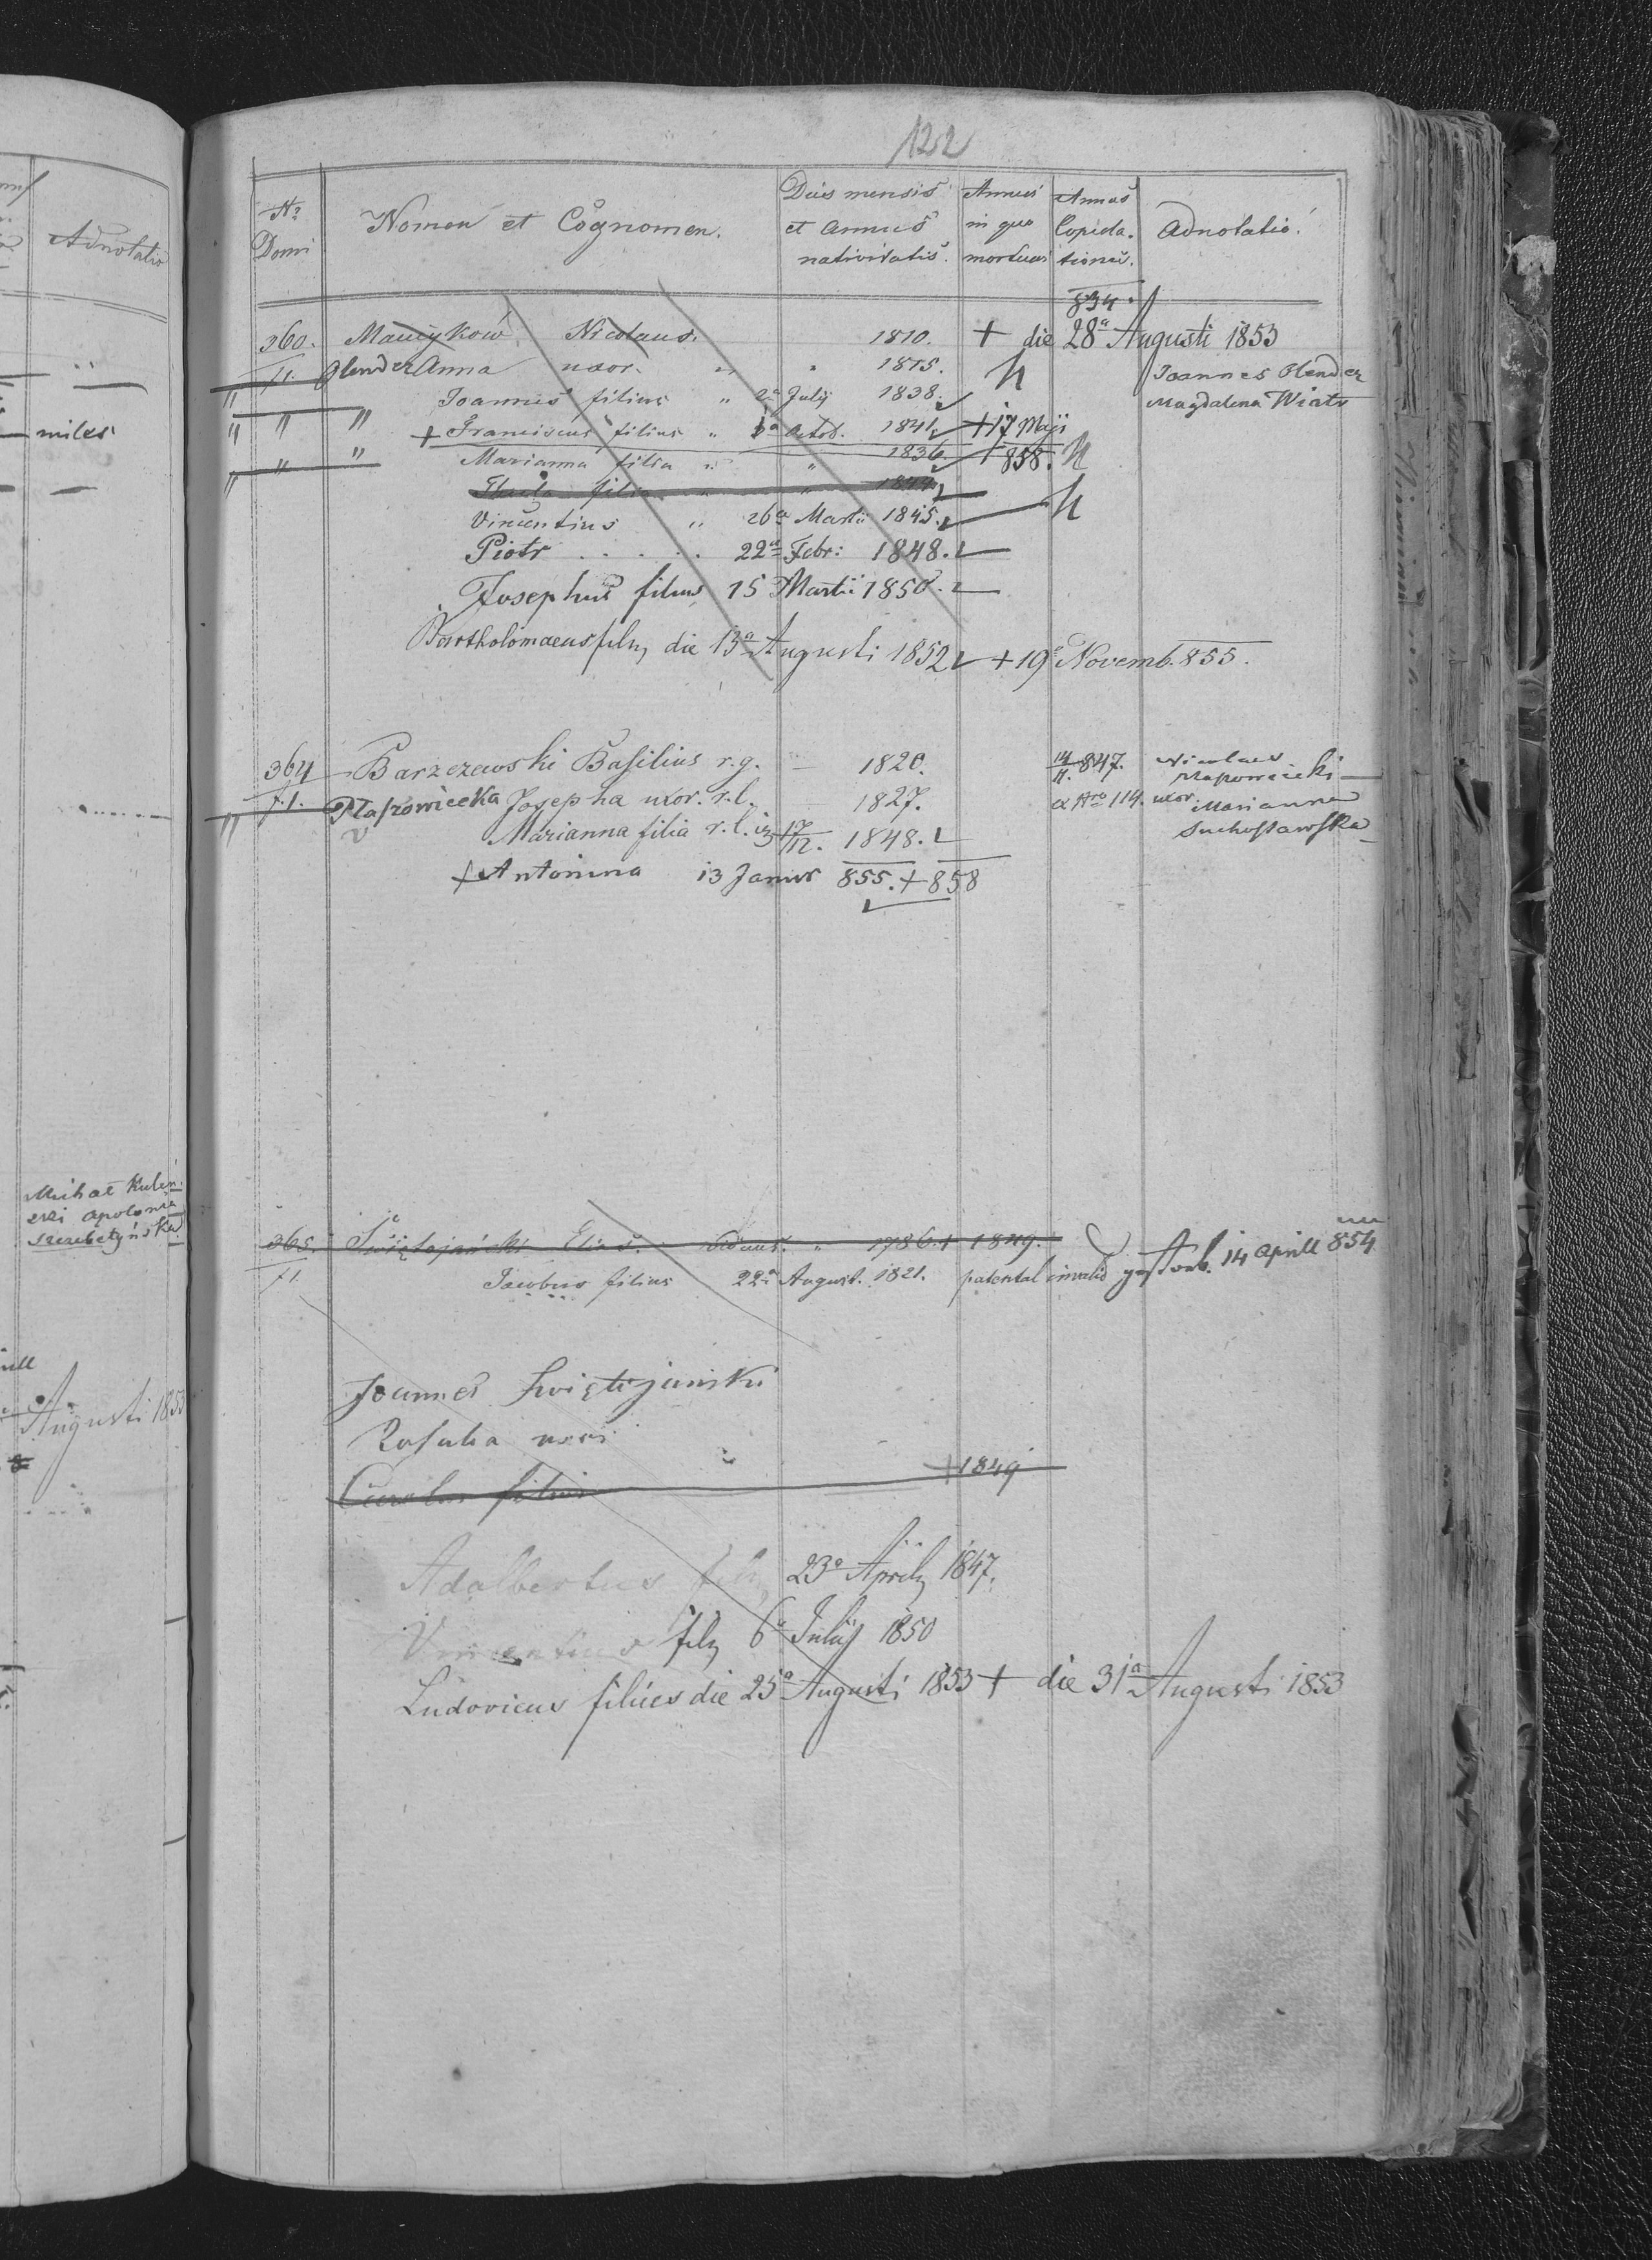 Adnotatio
miles
Michał Kuleń
ski Apolonia
Szczebetyńska
Augusti 1853
122
Nº Domi
Nomen et Cognomen.
Dies mensis et annus nativitatis.
Annus in quo mortuus
Annus Copulationis.
Adnotatio.
834.
360. Nicolaus. 1810. + die 28ª Augusti 1853
f1. Olender Anna uxor. " " 1815. Joannes Olender
Joannes filius " 2ª July 1838. Magdalena Wiatr
" " + Franciscus filius " 1ª Octob. 1841. + 17 Maji
" Marianna filia " " 1836. 858.
Thecla filia " " 1844
Vincentius " 26ª Martii 1845.
Piotr . . . . . 22ª Febr: 1848.
Josephus filius 15 Martii 1850.
Bartholomaeus fil die 13ª Augusti 1852 + 19ª Novemb. 855.
364 Barzczewski Basilius r.g. – 1820. 14/11. 847. Nicolaus
f.1. Płapowiecka Josepha uxor. r.l. 1827. a Nro 114. uxor Marianna
Marianna filia r.l. 17/12. 1848. Suchosławska
+ Antonina 13 Januar 855. + 858
365. Świętojański Elias. viduus. " 1786. + 1849.
f1. Jacobus filius 22ª August. 1821. patental invalid 14 April 854
Joannes Świętojański
Rosalia uxor
Carolus filius + 1849
Adalbertus fil 23ª Aprily 1847.
Vincentius fil 6ª July 1850
Ludovicus filius die 25ª Augusti 1853 + die 31ª Augusti 1853